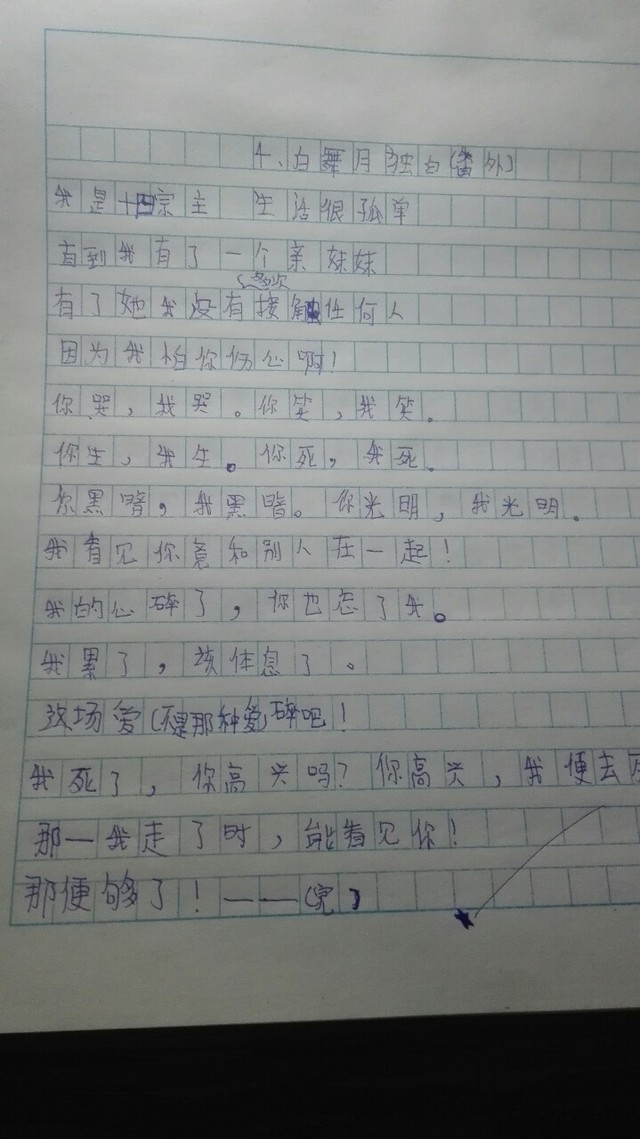 4、白舞月独白(番外)
我是十四宗主 生活很孤单
直到我有了一个亲妹妹
多次
有了她我没有接触任何人
因为我怕你伤心啊！
你哭，我哭。你笑，我笑。
你生，我生。你死，我死。
你黑暗，我黑暗。你光明，我光明。
我看见你竟和别人在一起！
我的心碎了，你也忘了我。
我累了，该体息了。
这场爱(不是那种爱)碎吧！
我死了，你高兴吗？你高兴，我便去
那一我走了时，能看见你！
那便够了！——(完)